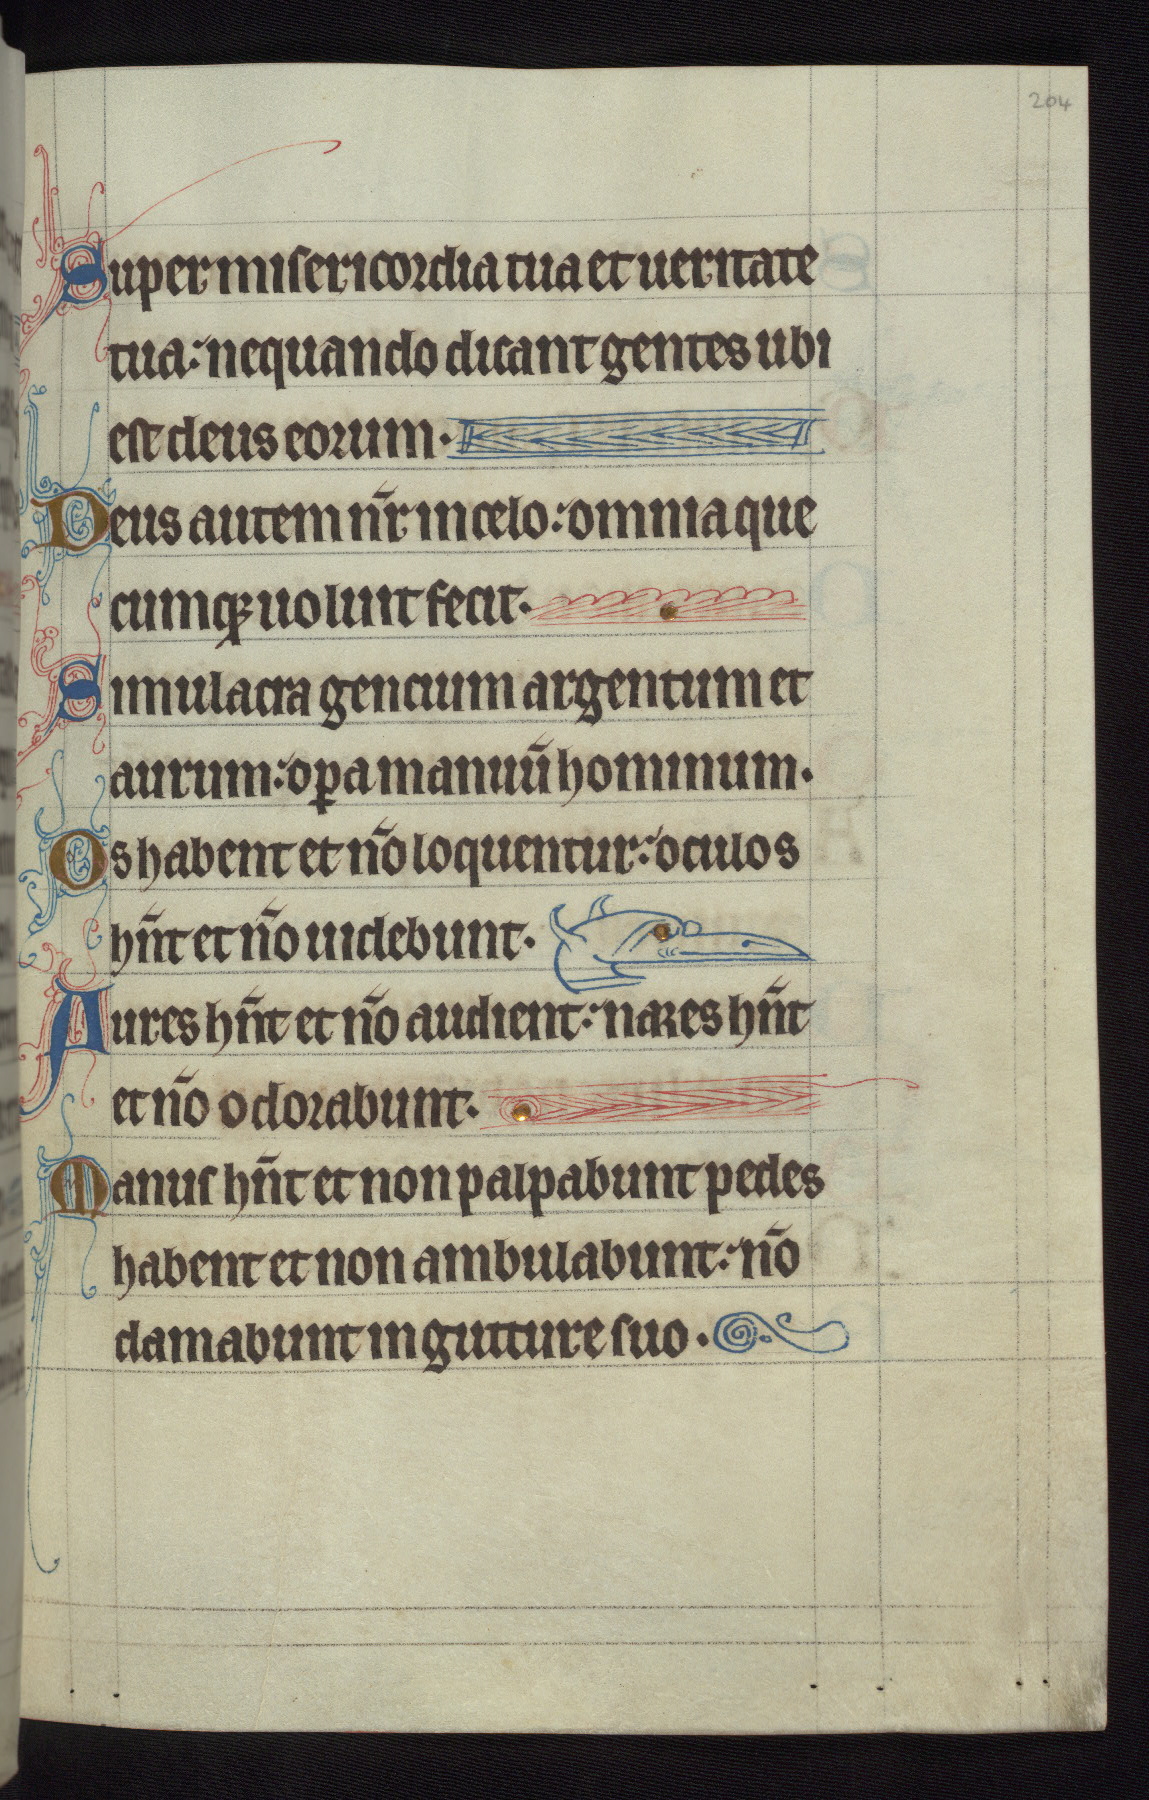 204
Super misericordia tua et ueritate
tua: nequando dicant gentes ubi
est deus eorum.
Deus autem nr̄ in celo: omnia que
cumqꝫ uoluit fecit.
Simulacra gencium argentum et
aurum: oꝑa manuū hominum.
Os habent et nō loquentur: oculos
hn̄t et nō uidebunt.
Aures hn̄t et nō audient: nares hn̄t
et nō odorabunt.
Manus hn̄t et non palpabunt pedes
habent et non ambulabunt: nō
clamabunt in gutture suo.